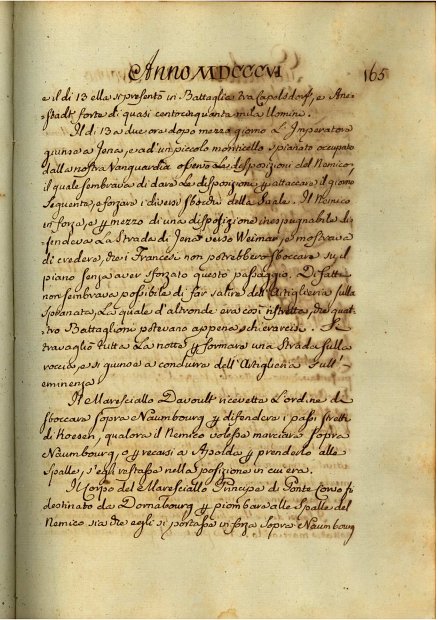 Anno MDCCCVI
165
e il dì 13 ella si presentò in Battaglia tra Capelsdorf, e Aue-
stadt forte di quasi centocinquanta mila Uomini.
Il dì 13 a due ora dopo mezza giorno L'Imperatore
giunse a Jena, e ad un piccolo monticello spianato occupato
dalla nostra Vanguardia osservò le disposizioni del Nemico
il quale sembrava di dare le disposizioni p attaccare il giorno
Sequente, e forzare i diversi sbocchi della Saale. Il Nemico
in forza, e p mezzo di una disposizione inespugnabile di-
fendeva La Strada di Jena verso Weimar, e mostrava
di credere, che i Francesi non potrebbero sboccare su il
piano senza aver sforzato questo passaggio. Di fatti
non sembrava possibile di far salire dell'Artiglieria sulla
spianata, La quale d'altronde era così ristretta, che quat-
tro Battaglioni potevano appena schierarsi. Si
travagliò tutta La notte p formare una Strada sulla
roccia, e si giunse a condurre dell'Artiglieria sull'
eminenza
Il Maresciallo Davoult ricevette L'ordine di
sboccare sopra Naumbourg p difendere i passi stretti
di Koesen, qualora il Nemico volesse marciare sopra
Naumbourg, o p recarsi a Apolda p prenderlo alle
Spalle, s'egli restasse nella posizione in cui era.
Il Corpo del Maresciallo Principe di Ponte Corvo fu
destinato da Dornabourg p piombare alle Spalle del
Nemico sia che egli si portasse in forza sopra Naumbourg